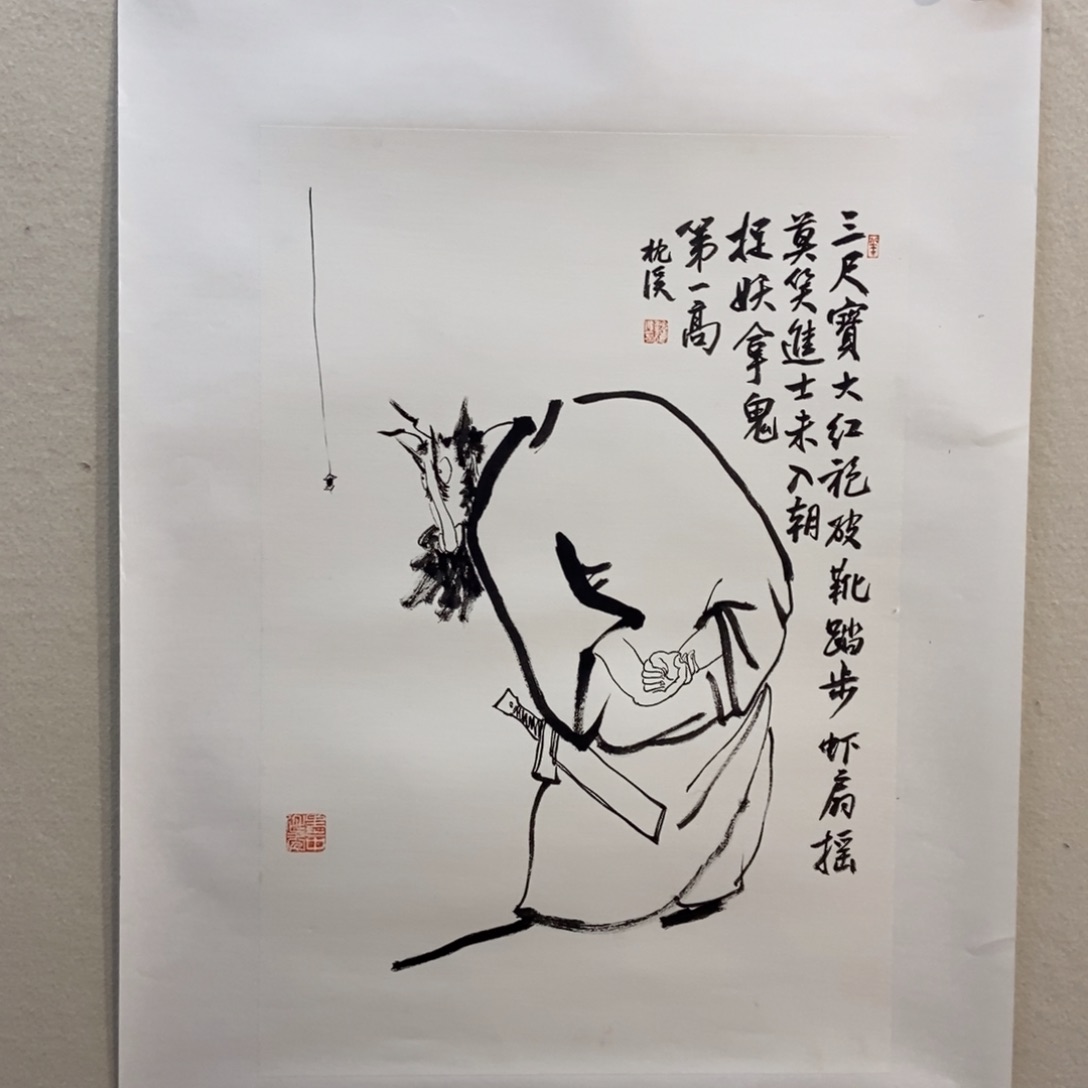 三尺寳大红袍破靴踏步虾扇摇
莫笑進士未入朝
捉妖拿鬼
第一高
枕溪